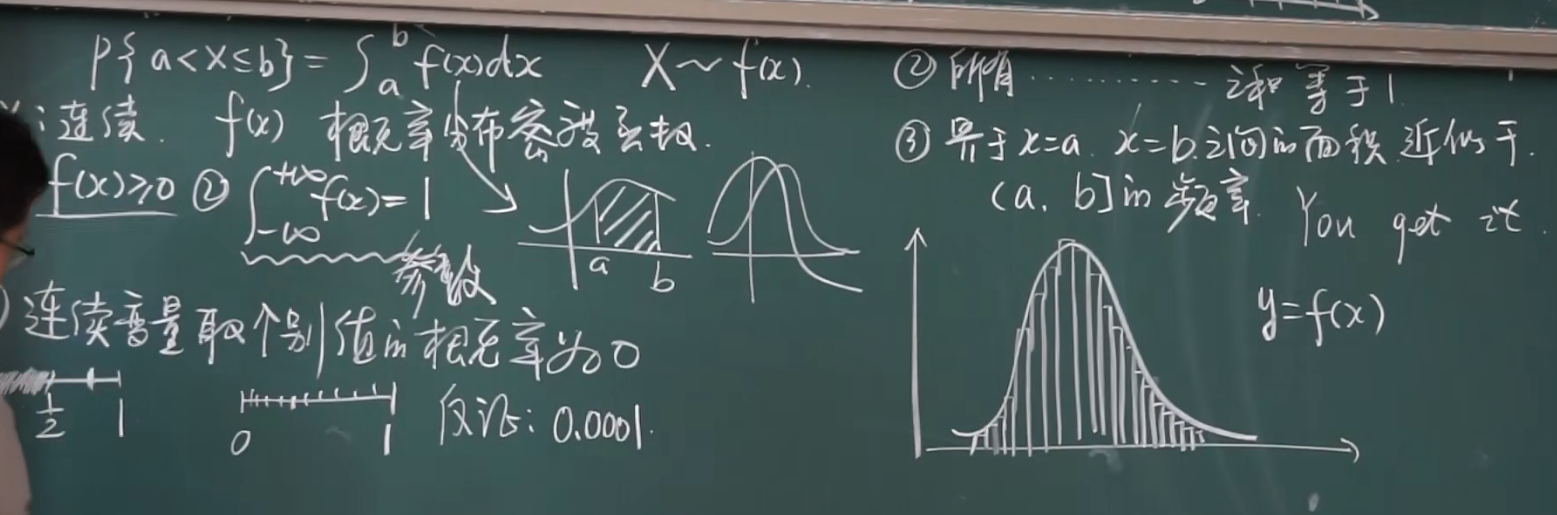 P{a<X≤b}=∫_a^b f(x)dx X~f(x).
:连续. f(x) 概率分布密度函数.
f(x)≥0 ② ∫_{-∞}^{+∞} f(x)=1
参数
a b
连续变量取个别值的概率为0
1/2 1
0 1 反证:0.0001.
②所有············之和等于1.
③界于x=a. x=b.之间的面积近似于.
(a. b]的频率. You get it.
y=f(x)